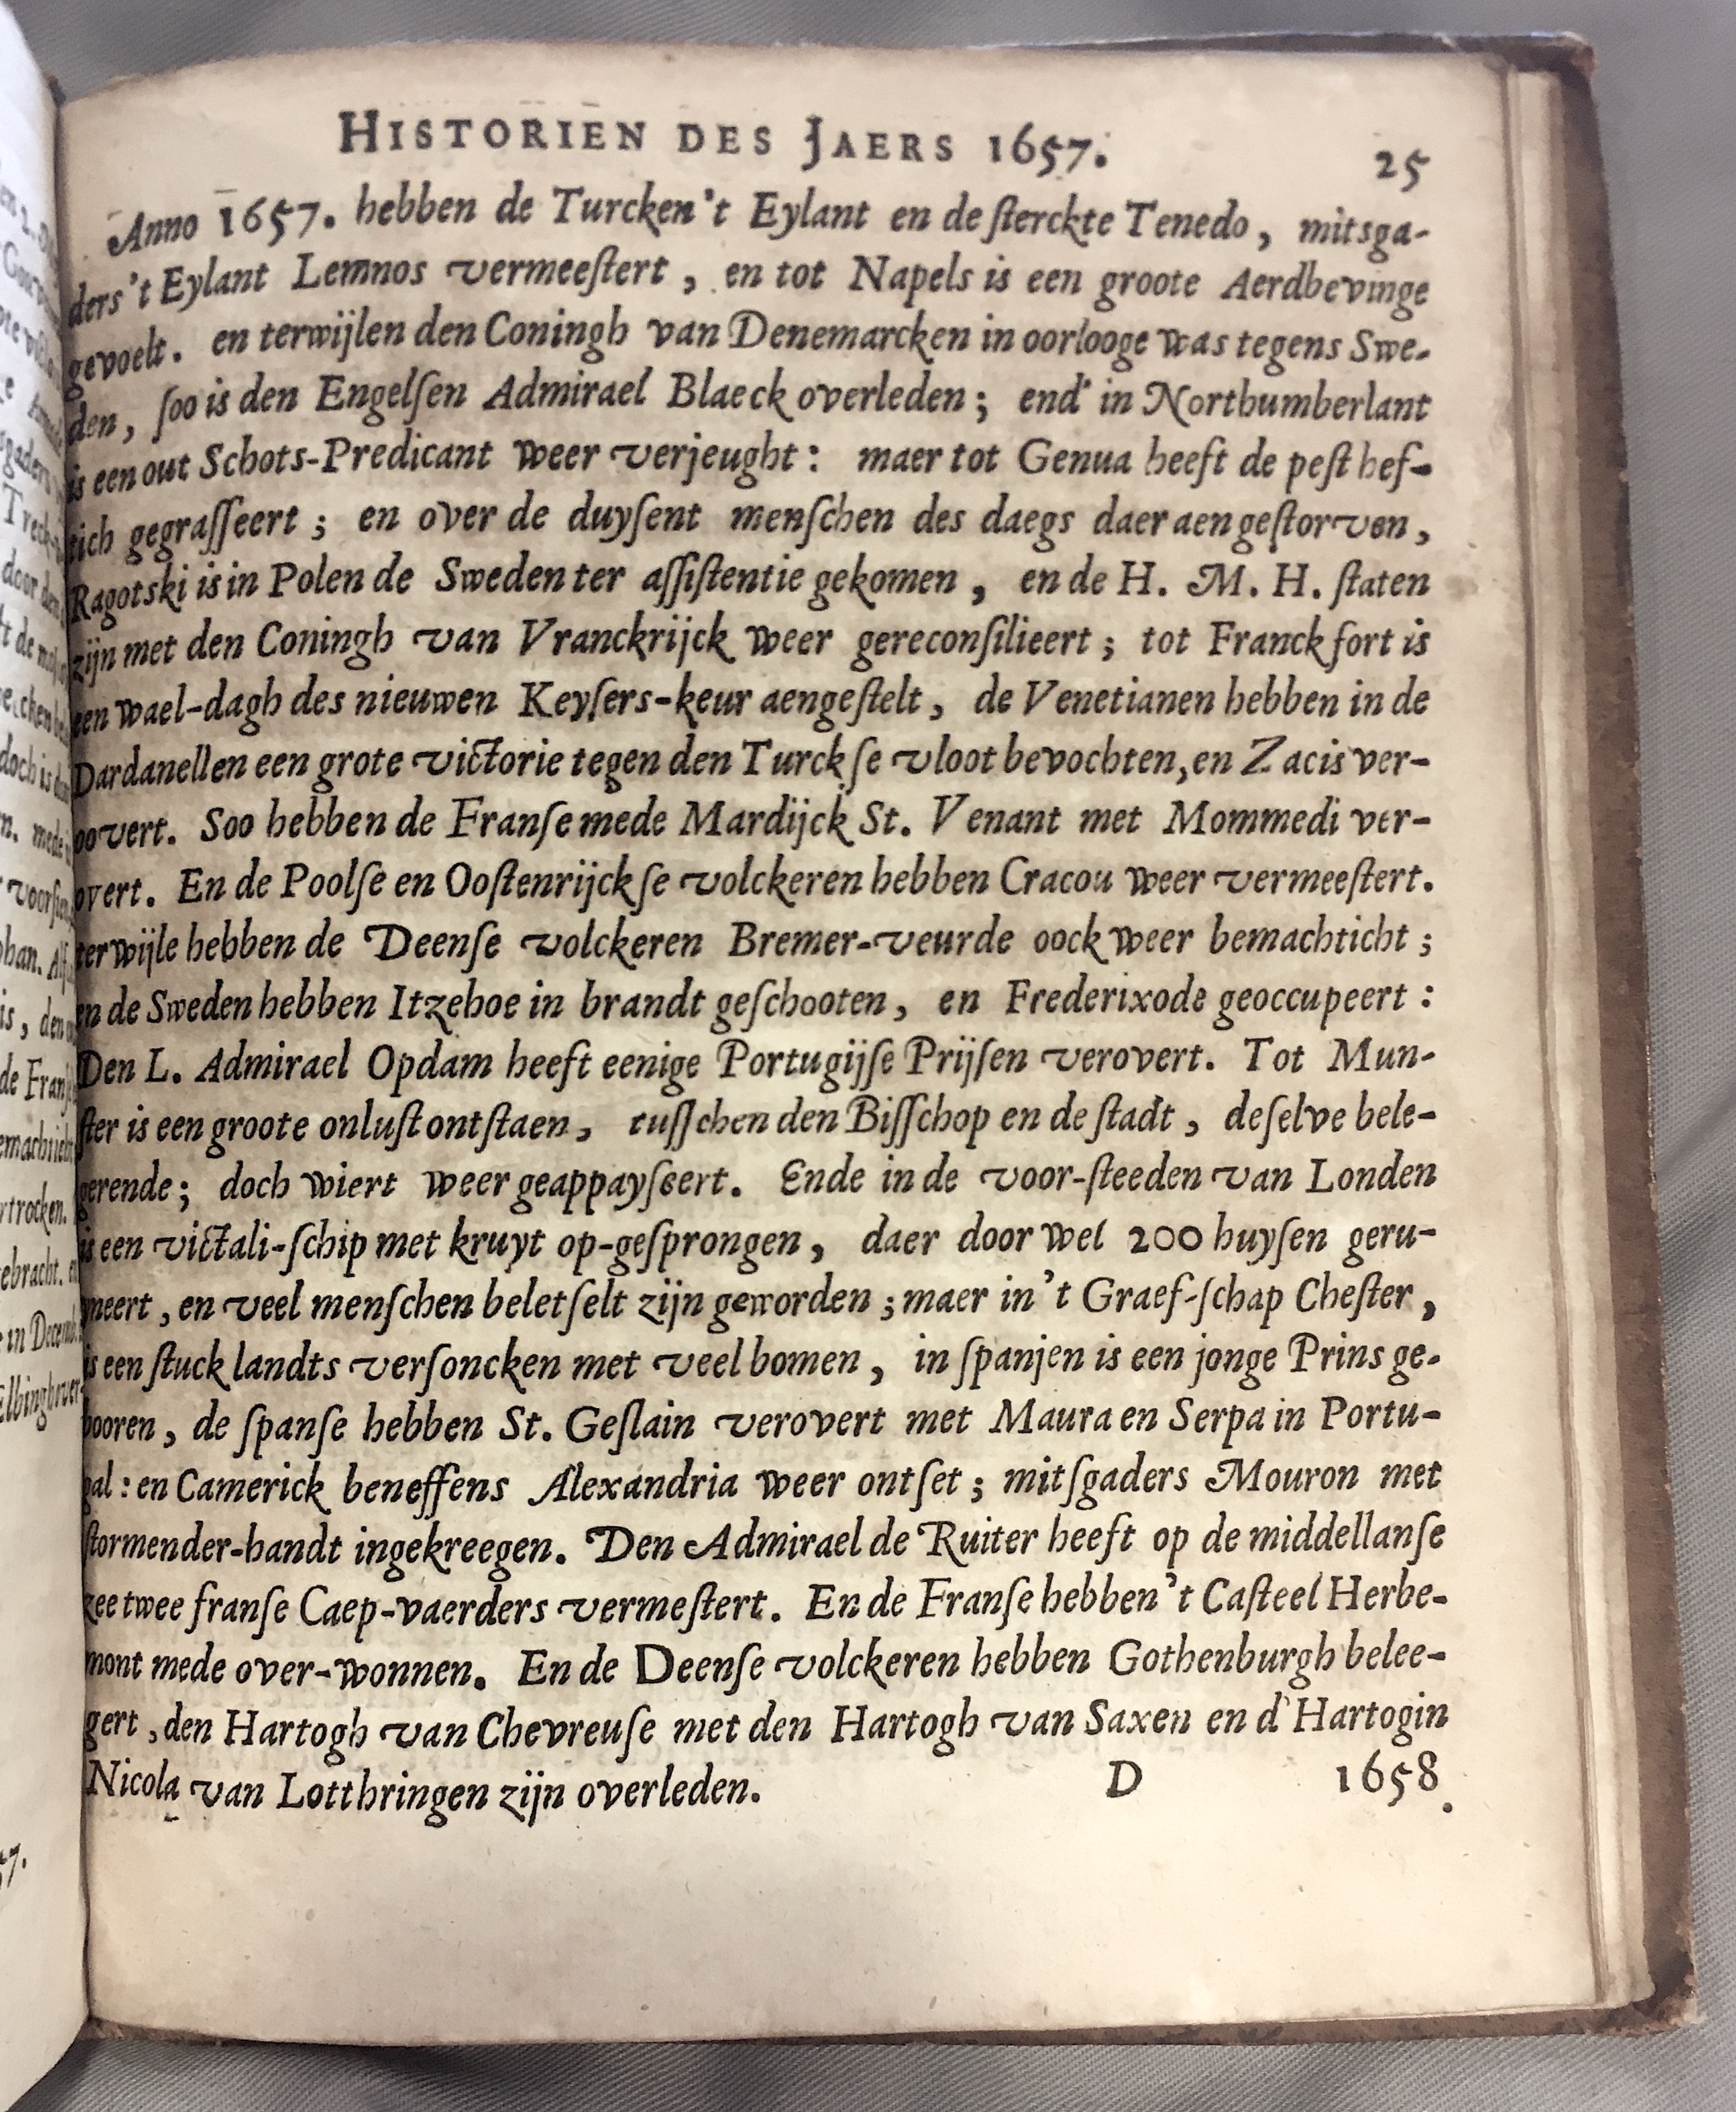 HISTORIEN DES JAERS 1657. 25
Anno 1657. hebben de Turcken't Eylant en de ſterckte Tenedo, mitsga-
ders 't Eylant Lemnos vermeeſtert, en tot Napels is een groote Aerdbevinge
gevoelt. en terwijlen den Coningh van Denemarcken in oorlooge was tegens Swe-
den, ſoo is den Engelſen Admirael Blaeck overleden; end' in Northumberlant
is een out Schots-Predicant weer verjeught: maer tot Genua heeft de peſt hef-
tich gegraſſeert; en over de duyſent menſchen des daegs daer aen geſtorven,
Ragotski is in Polen de Sweden ter aſſiſtentie gekomen, en de H. M. H. ſtaten
zijn met den Coningh van Vranckrijck weer gereconſilieert; tot Franckfort is
een wael-dagh des nieuwen Keyſers-keur aengeſtelt, de Venetianen hebben in de
Dardanellen een grote victorie tegen den Turckſe vloot bevochten, en Zacis ver-
oovert. Soo hebben de Franſe mede Mardijck St. Venant met Mommedi ver-
overt. En de Poolſe en Ooſtenrijckſe volckeren hebben Cracou weer vermeeſtert.
terwijle hebben de Deenſe volckeren Bremer-veurde oock weer bemachticht;
en de Sweden hebben Itzehoe in brandt geſchooten, en Frederixode geoccupeert:
Den L. Admirael Opdam heeft eenige Portugijſe Prijſen verovert. Tot Mun-
ſter is een groote onluſt ontſtaen, tuſſchen den Biſſchop en de ſtadt, deſelve bele-
gerende; doch wiert weer geappayſeert. Ende in de voor-ſteeden van Londen
is een victali-ſchip met kruyt op-geſprongen, daer door wel 200 huyſen geru-
neert, en veel menſchen beletſelt zijn geworden; maer in't Graef-ſchap Cheſter,
is een ſtuck landts verſoncken met veel bomen, in ſpanjen is een jonge Prins ge-
booren, de ſpanſe hebben St. Geſlain verovert met Maura en Serpa in Portu-
gal: en Camerick beneffens Alexandria weer ontſet; mitſgaders Mouron met
ſtormender-handt ingekreegen. Den Admirael de Ruiter heeft op de middellanſe
zee twee franſe Caep-vaerders vermeſtert. En de Franſe hebben't Caſteel Herbe-
mont mede over-wonnen. En de Deenſe volckeren hebben Gothenburgh belee-
gert, den Hartogh van Chevreuſe met den Hartogh van Saxen en d'Hartogin
Nicola van Lotthringen zijn overleden. D 1658.